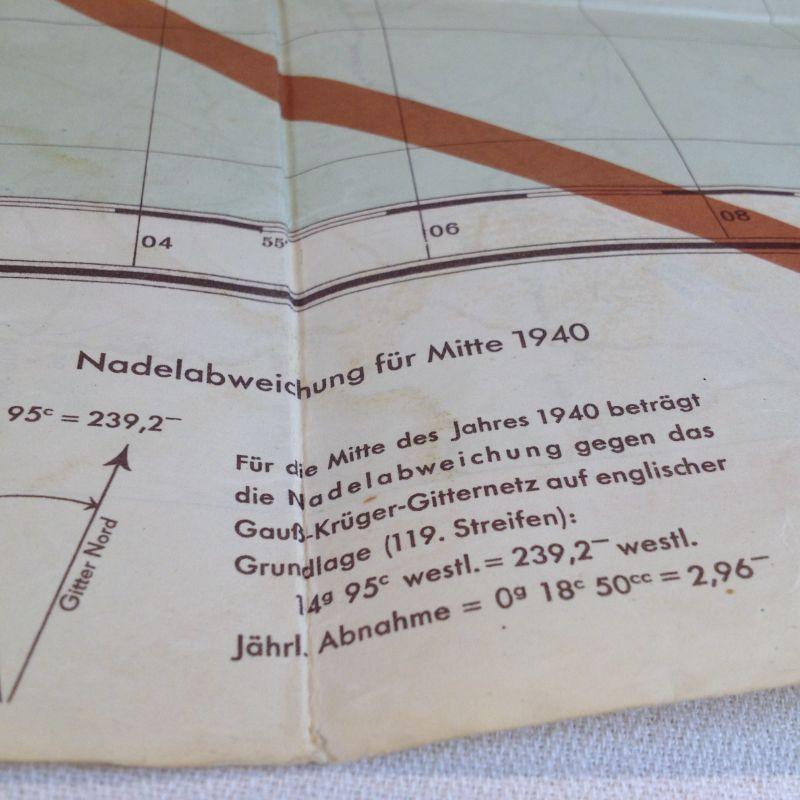 04
55'
06
08
Nadelabweichung für Mitte 1940
95ᶜ = 239,2⁻
Gitter Nord
Für die Mitte des Jahres 1940 beträgt
die Nadelabweichung gegen das
Gauß-Krüger-Gitternetz auf englischer
Grundlage (119. Streifen):
14ᵍ 95ᶜ westl. = 239,2⁻ westl.
Jährl. Abnahme = 0ᵍ 18ᶜ 50ᶜᶜ = 2,96⁻